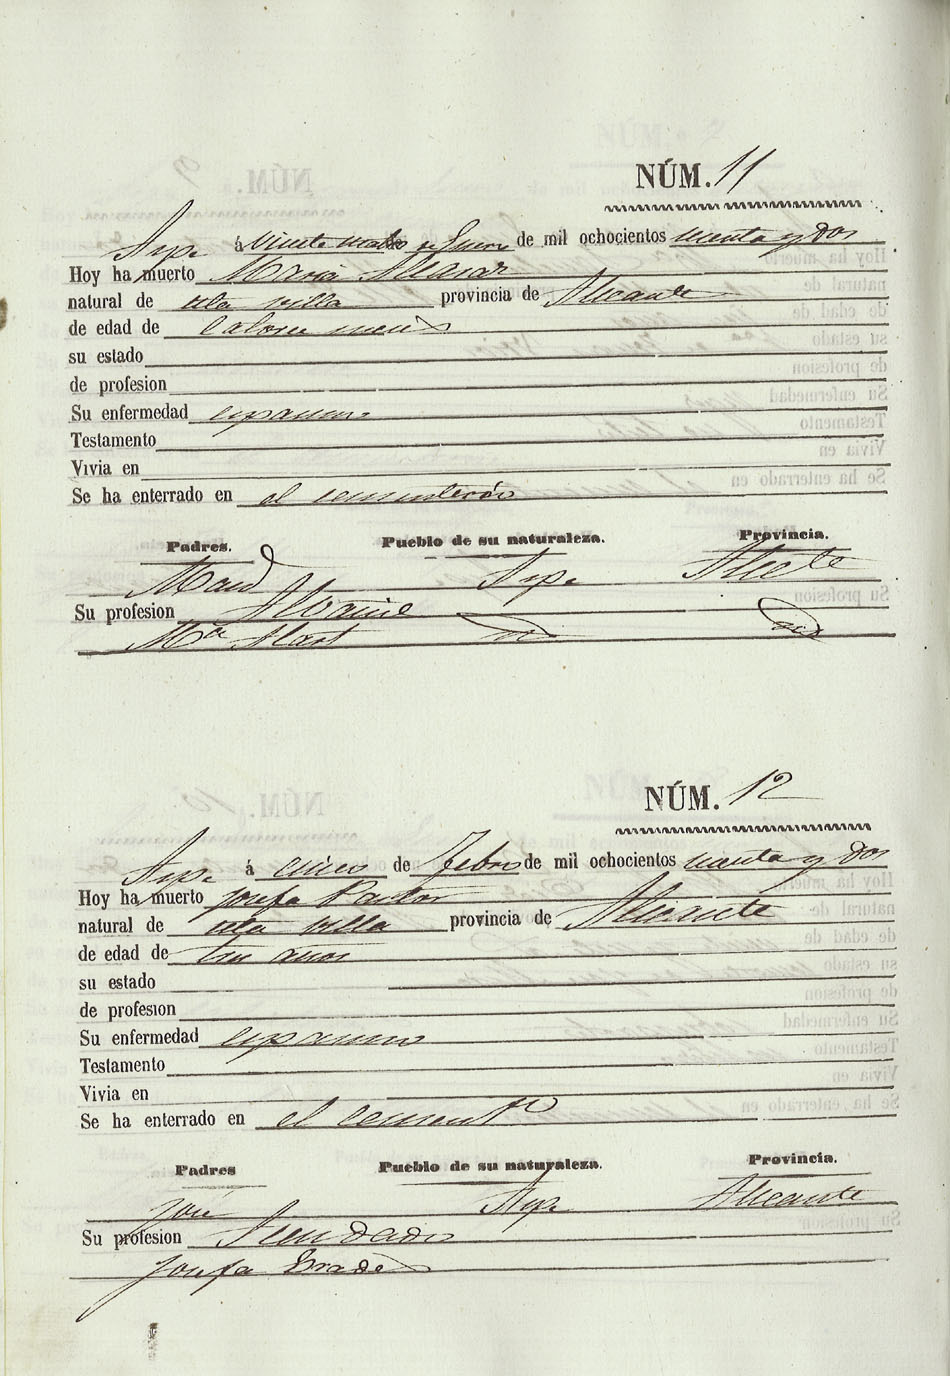 NÚM. 11
Aspe á Veinte de Enero de mil ochocientos cuenta y dos
Hoy ha muerto Maria Alcaraz
natural de esta villa provincia de Alicante
de edad de Catorce meses
su estado
de profesion
Su enfermedad espasmo
Testamento
Vivia en
Se ha enterrado en el cementerio
Padres. Pueblo de su naturaleza. Provincia.
Aspe Alicte
Su profesion Albañil
Mª
NÚM. 12
Aspe á cinco de Febro de mil ochocientos cuenta y dos
Hoy ha muerto Josefa Pastor
natural de esta villa provincia de Alicante
de edad de tres años
su estado
de profesion
Su enfermedad espasmo
Testamento
Vivia en
Se ha enterrado en el cementº
Padres Pueblo de su naturaleza. Provincia.
José Aspe Alicante
Su profesion Acendado
Josefa Prades